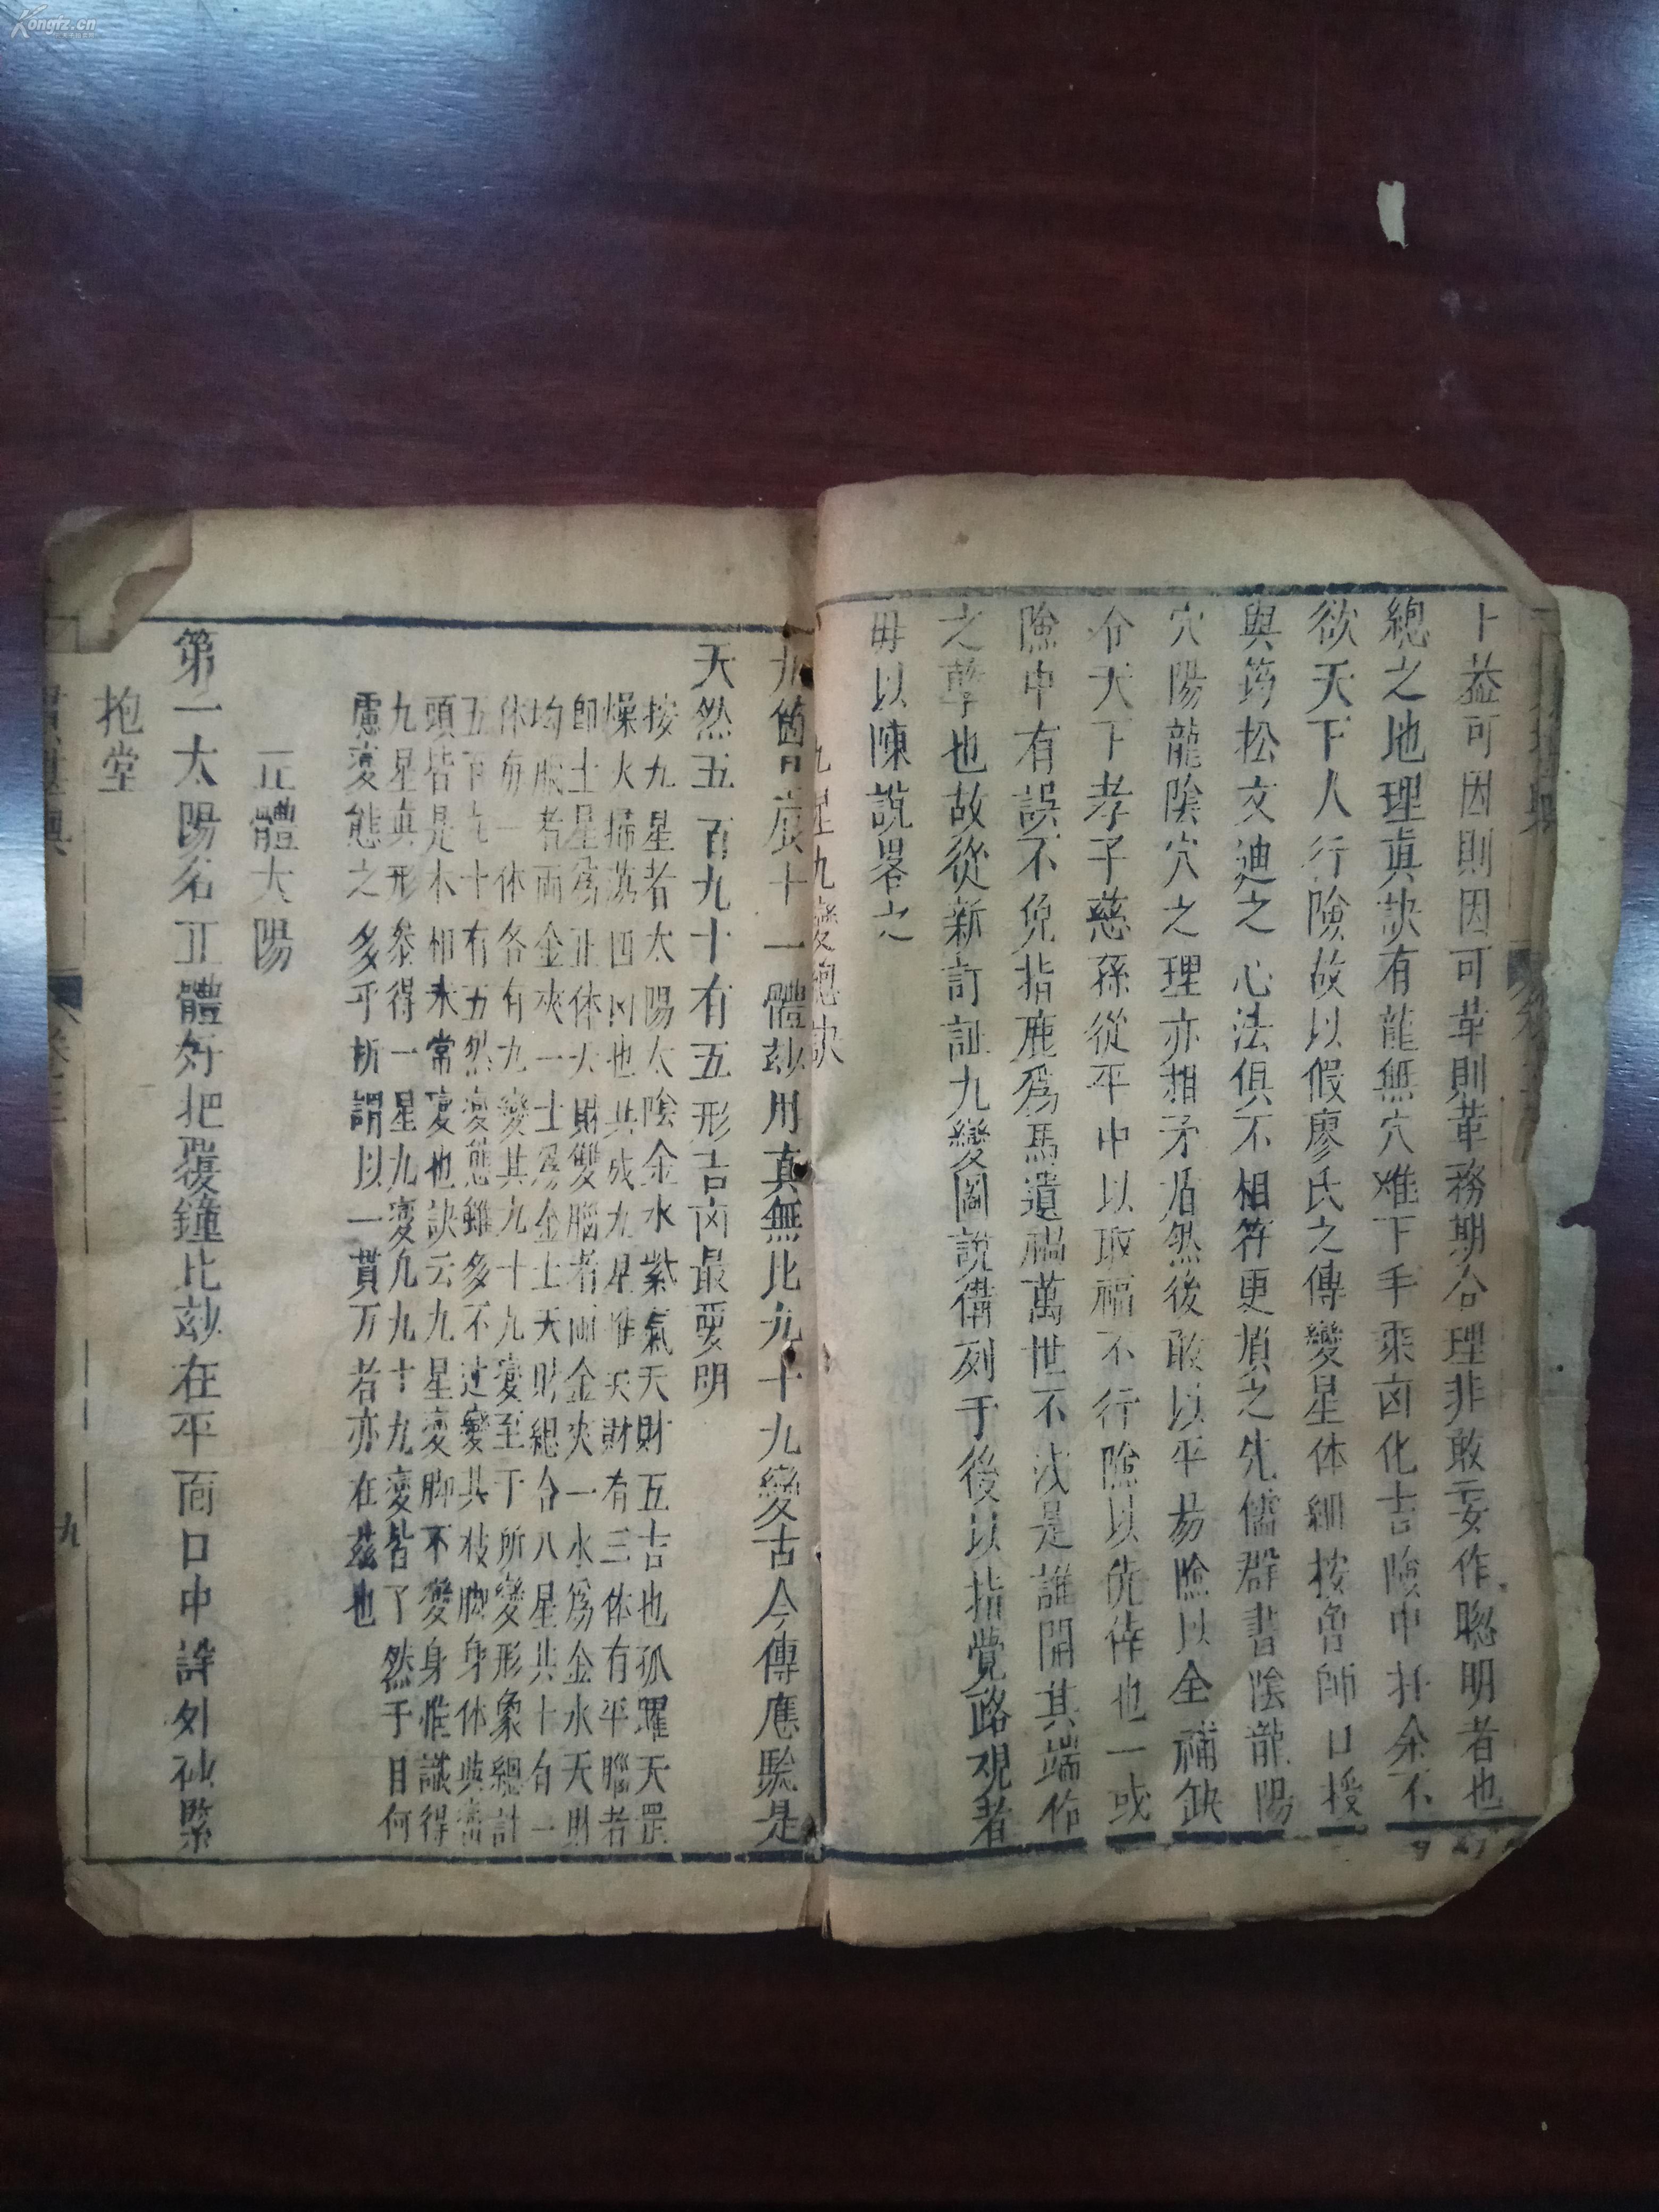 卜益可因則因可革則革務期合理非敢妄作聰明者也
總之地理真訣有龍無穴难下手乘囟化吉險中扦余不
欲天下人行險故以假廖氏之傳變星体細按曾師口授
與筠松文迪之心法俱不相符更損之先儒群書陰龍陽
穴陽龍陰穴之理亦相矛盾然後敢以平易險以全補缺
令天下孝子慈孫從平中以取福不行險以先倖也一或
險中有誤不免指鹿為馬遺禍萬世不浅是誰開其端作
之孽也故從新訂証九變圖說備列于後以指覺路观者
毋以陳說畧之
九星九變總訣
九箇星辰十一體玅用真無比九十九變古今傳應驗是
天然五百九十有五形吉凶最要明
按九星者太陽太陰金水紫氣天財五吉也孤曜天罡
燥火掃蕩四凶也共成九星惟天財有三体有平腦者
即土星為正体天財雙腦者兩金夾一水為金水天財
均腦者兩金夾一土為金土天財總合八星共十有一
体每一体各有九變其九十九變至于所變形象總計
五百九十有五然變態雖多不过變其枝脚身体與巒
頭皆是木相未常變也訣云九星变脚不變身惟識得
九星真形叅得一星九变九九十九变皆了然于目何
慮变態之多乎所謂以一貫万者亦在兹也
正體太陽
第一太陽名正體好把覆鐘比玅在平面口中詳外砂緊
抱堂
卷三
九
Kongfz.cn